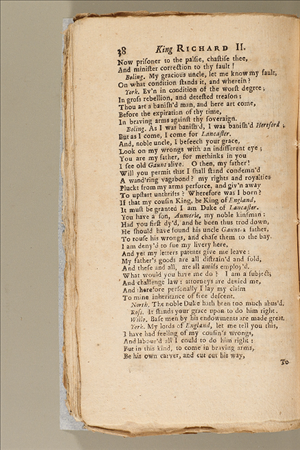 38 King RICHARD II.
Now prisoner to the palsie, chastise thee,
And minister correction to thy fault!
Boling. My gracious uncle, let me know my fault,
On what condition stands it, and wherein?
York. Ev'n in condition of the worst degree;
In gross rebellion, and detested treason:
Thou art a banish'd man, and here art come,
Before the expiration of thy time,
In braving arms against thy soveraign.
Boling. As I was banish'd, I was banish'd Hereford;
But as I come, I come for Lancaster.
And, noble uncle, I beseech your grace,
Look on my wrongs with an indifferent eye;
You are my father, for methinks in you
I see old Gaunt alive. O then, my father!
Will you permit that I shall stand condemn'd
A wand'ring vagabond? my rights and royalties
Pluckt from my arms perforce, and giv'n away
To upstart unthrifts? Wherefore was I born?
If that my cousin King, be King of England,
It must be granted I am Duke of Lancaster.
You have a son, Aumerle, my noble kinsman:
Had you first dy'd, and he been thus trod down,
He should have found his uncle Gaunt a father,
To rouse his wrongs, and chase them to the bay.
I am deny'd to sue my livery here,
And yet my letters patents give me leave:
My father's goods are all distrain'd and sold,
And these and all, are all amiss employ'd.
What would you have me do? I am a subject,
And challenge law: attorneys are denied me,
And therefore personally I lay my claim
To mine inheritance of free descent.
North. The noble Duke hath been too much abus'd.
Ross. It stands your grace upon to do him right.
Willo. Base men by his endowments are made great.
York. My lords of England, let me tell you this,
I have had feeling of my cousin's wrongs,
And labour'd all I could to do him right:
But in this kind, to come in braving arms,
Be his own carver, and cut out his way,
To